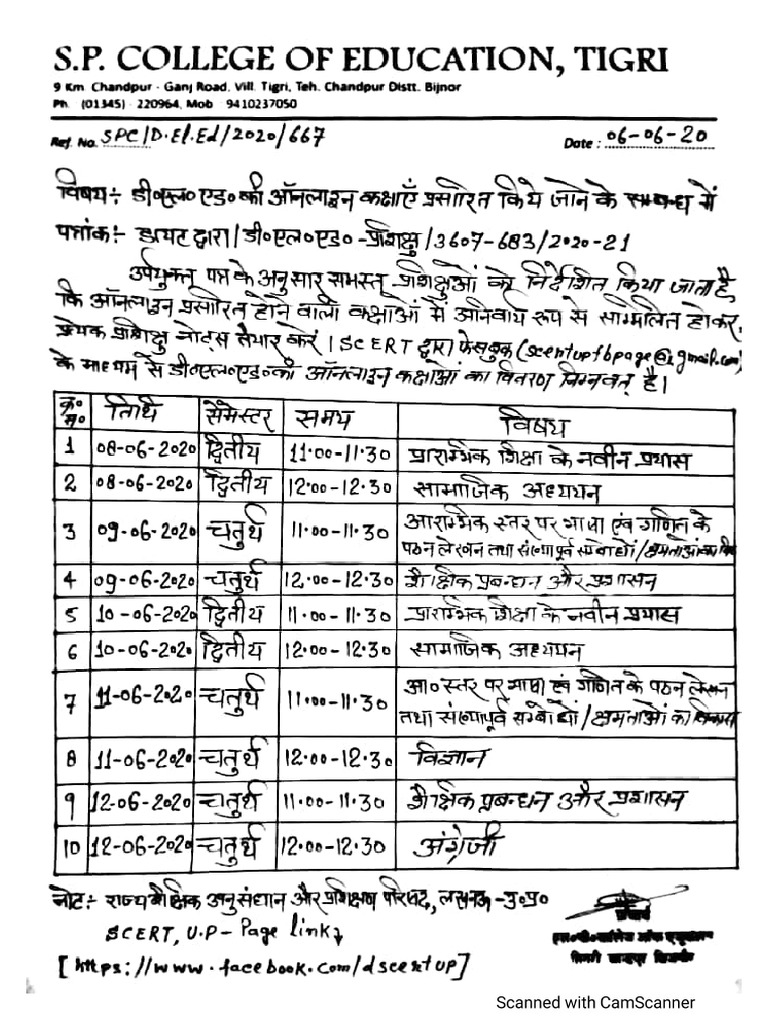 S.P. COLLEGE OF EDUCATION, TIGRI
9 Km. Chandpur - Ganj Road, Vill. Tigri, Teh. Chandpur Distt. Bijnor
Ph. (01345) - 220964, Mob 9410237050
Ref. No. SPC/D.El.Ed/2020/667 Date : 06-06-20
विषय:- डी०एल०एड० की ऑनलाइन कक्षाएँ प्रसारित किये जाने के सम्बन्ध में
पत्रांक:- डायट द्वारा/डी०एल०एड०-प्रशिक्षु/3607-683/2020-21
उपर्युक्त पत्र के अनुसार समस्त प्रशिक्षुओं को निर्देशित किया जाता है,
कि ऑनलाइन प्रसारित होने वाली कक्षाओं में अनिवार्य रूप से सम्मिलित होकर,
प्रत्येक प्रशिक्षु नोट्स तैयार करें। SCERT द्वारा फेसबुक (scertupfbpage@gmail.com)
के माध्यम से डी०एल०एड० की ऑनलाइन कक्षाओं का वितरण निम्नवत् है।
क्र० सं० तिथि सेमेस्टर समय विषय
1 08-06-2020 द्वितीय 11.00-11.30 प्रारम्भिक शिक्षा के नवीन प्रयास
2 08-06-2020 द्वितीय 12.00-12.30 सामाजिक अध्ययन
3 09-06-2020 चतुर्थ 11.00-11.30 आरम्भिक स्तर पर भाषा एवं गणित के
पठन लेखन तथा संख्यापूर्व सम्बोधों/क्षमताओं का
4 09-06-2020 चतुर्थ 12.00-12.30 शैक्षिक प्रबन्धन और प्रशासन
5 10-06-2020 द्वितीय 11.00-11.30 प्रारम्भिक शिक्षा के नवीन प्रयास
6 10-06-2020 द्वितीय 12.00-12.30 सामाजिक अध्ययन
7 11-06-2020 चतुर्थ 11.00-11.30 आ० स्तर पर भाषा एवं गणित के पठन लेखन
तथा संख्यापूर्व सम्बोधों/क्षमताओं का विकास
8 11-06-2020 चतुर्थ 12.00-12.30 विज्ञान
9 12-06-2020 चतुर्थ 11.00-11.30 शैक्षिक प्रबन्धन और प्रशासन
10 12-06-2020 चतुर्थ 12.00-12.30 अंग्रेजी
नोट:- राज्य शैक्षिक अनुसंधान और प्रशिक्षण परिषद, लखनऊ-उ०प्र०
SCERT, U.P- Page link
[https://www.facebook.com/dscertup]
प्राचार्य
एस०पी०कॉलेज ऑफ एजुकेशन
तिगरी चान्दपुर बिजनौर
Scanned with CamScanner